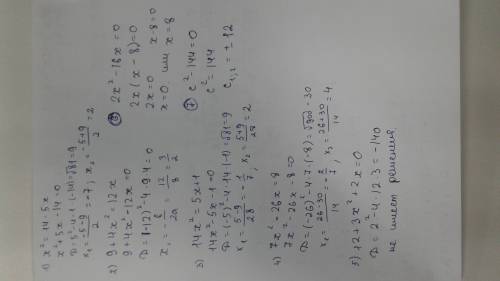 1) x² = 14 - 5x
x² + 5x - 14 = 0
D = 5² - 4·1·(-14) = √81 = 9
x₁ = (-5-9)/2 = -7; x₂ = (-5+9)/2 = 2
2) 9 + 4x² = 12x
9 + 4x² - 12x = 0
D = (-12)² - 4·9·4 = 0
x₀ = -b/2a = 12/8 = 3/2
3) 14x² = 5x + 1
14x² - 5x - 1 = 0
D = (-5)² - 4·14·(-1) = √81 = 9
4) 7x² - 26x = 8
7x² - 26x - 8 = 0
D = (-26)² - 4·7·(-8) = √900 = 30
x₁ = (26-30)/14 = -2/7; x₂ = (26+30)/14 = 4
5) 12 + 3x² + 2x = 0
D = 2 - 4·12·3 = -140
не имеет решения
⑥ 2x² - 16x = 0
2x(x - 8) = 0
2x = 0 x - 8 = 0
x = 0 или x = 8
⑦ c² - 144 = 0
c² = 144
c₁,₂ = ±12